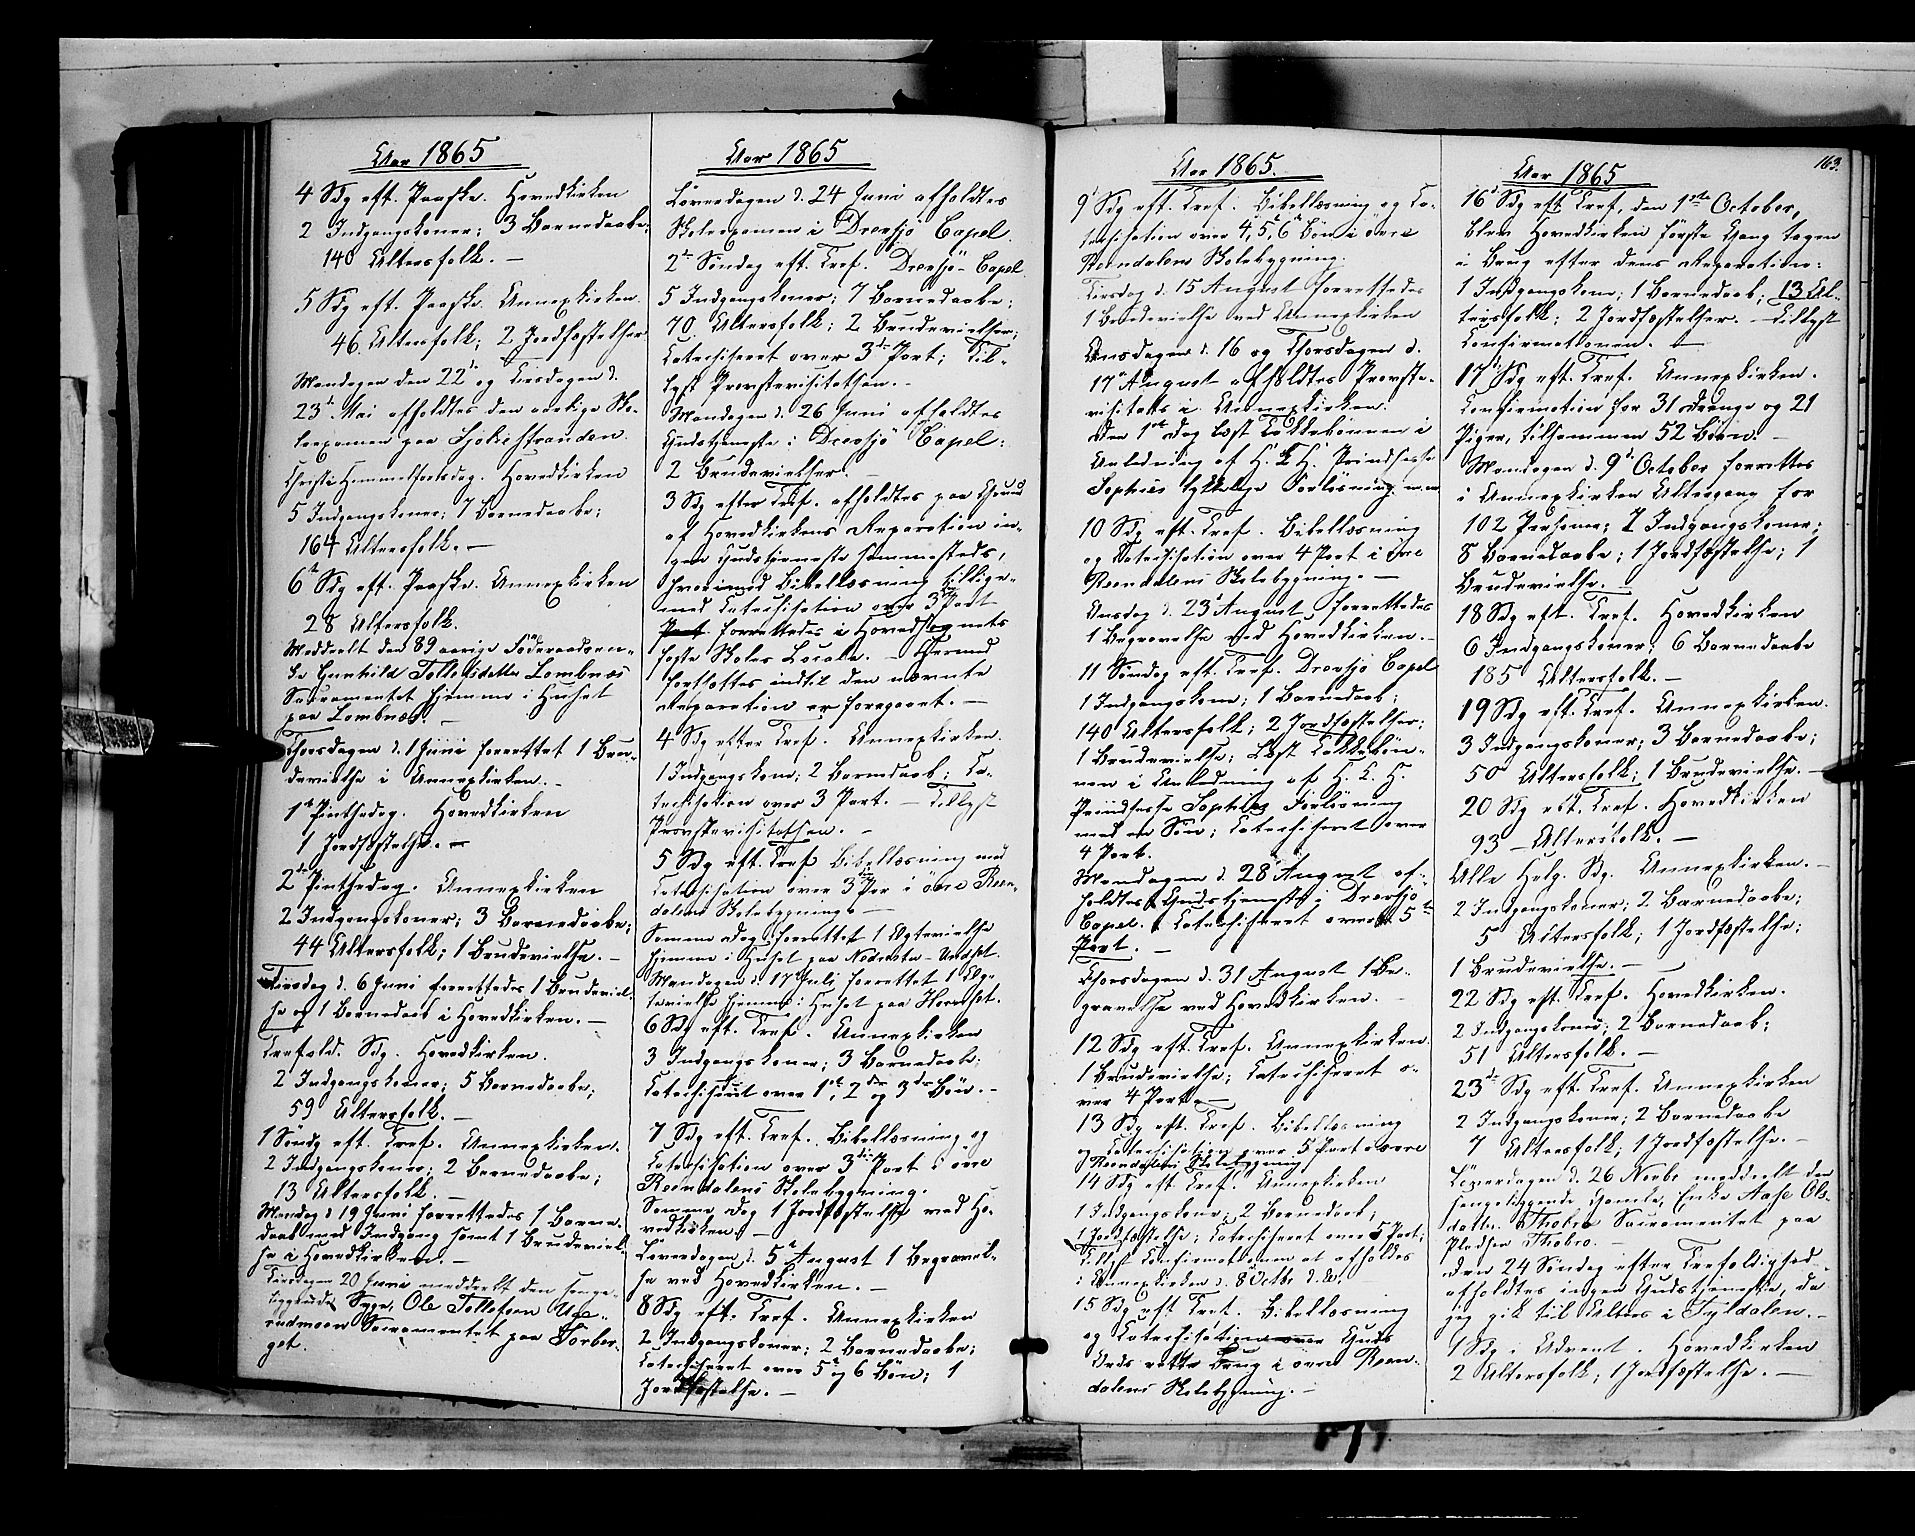 Aar 1865
4 Sdg eft. Paaske. Hovedkirken
2 Indgangskoner; 3 Barnedaabe;
140 Altersfolk. —
5 Sdg eft. Paaske. Annexkirken.
46 Altersfolk; 2 Jordfæstelser.
Mandagen den 22de og Tirsdagen d.
23de Mai afholdtes den aarlige Sko-
leexamen paa Sjølistranden.
Christi Himmelfartsdag. Hovedkirken
5 Indgangskoner; 7 Barnedaabe;
164 Altersfolk. —
6te Sdg eft. Paaske. Annexkirken
28 Altersfolk.
Meddeelt den 89 aarige Føderaadsen-
ke Gunhild Tollefsdatter Lombnæs
Sacramentet hjemme i Huset
paa Lombnæs. —
Thorsdagen d. 1 Juni forrettet 1 Bru-
devielse i Annexkirken. —
1ste Pintsedag. Hovedkirken
1 Jordfæstelse. —
2den Pintsedag. Annexkirken
2 Indgangskoner; 3 Barnedaabe;
44 Altersfolk; 1 Brudevielse. —
Tirsdag d. 6 Juni forrettedes 1 Brudeviel-
se og 1 Barnedaab i Hovedkirken. —
Trefold. Sdg. Hovedkirken.
2 Indgangskoner; 5 Barnedaabe;
59 Altersfolk. —
1 Søndg eft. Tref. Annexkirken.
2 Indgangskoner; 2 Barnedaabe;
13 Altersfolk. —
Mandag d 19 Juni forrettedes 1 Barne-
daab med Indgang samt 1 Brudeviel-
se i Hovedkirken. —
Tirsdagen 20 Juni meddeelt den senge-
liggende Syge, Ole Tollefsen
Sacramentet paa Torber-
get.
Aar 1865
Løverdagen d. 24 Juni afholdtes
Skoleexamen i Drevsjø Capel.
2den Søndag eft. Tref. Drevsjø-Capel
5 Indgangskoner; 7 Barnedaabe;
70 Altersfolk; 2 Brudevielser;
Catechiseret over 3die Part; Til-
lyst Provstevisitatsen. —
Mandagen d. 26 Juni afholdtes
Gudstjeneste i Drevsjø Capel:
2 Brudevielser. —
3 Sdg efter Tref. afholdtes paa Grund
af Hovedkirkens Reparation in-
gen Gudstjeneste sammesteds,
hvorimod Bibellæsning tillige-
med Catechisation over 3die Part
Part forrettedes i Hovedsognets
faste Skoles Locale. — Herved
fortsættes indtil den nævnte
Reparation er foregaaet. —
4 Sdg efter Tref. Annexkirken.
1 Indgangskone; 2 Barnedaab; Ca-
techisation over 3 Part. — Tillyst
Provstevisitatsen. —
5 Sdg eft. Tref. Bibellæsning med
Catechisation over 3die Par i øvre Reen-
dalens Skolebygning. —
Samme Dag forrettet 1 Ægtevielse
hjemme i Huset paa
Mandagen d. 17 Juli forrettet 1 Æg-
tevielse hjemme i Huset paa Hornset.
6 Sdg eft. Tref. Annexkirken
3 Indgangskoner; 3 Barnedaabe;
Catechiseret over 1ste, 2den og 3die Bøn. —
7 Sdg eft. Tref. Bibellæsning og
Catechisation over 3die Part i øvre
Reendalens Skolebygning.
Samme Dag 1 Jordfæstelse ved Ho-
vedkirken. —
Løverdagen d. 5te August 1 Begravel-
se ved Hovedkirken. —
8 Sdg eft. Tref. Annexkirken
2 Indgangskoner; 2 Barnedaabe;
Catechiseret over 5te og 6 Bøn; 1
Jordfæstelse. —
Aar 1865.
9de Sdg eft. Tref. Bibellæsning og Ca-
techisation over 4, 5, 6te Bøn i øvre
Reendalens Skolebygning.
Tirsdag d. 15 August forrettedes
1 Brudevielse ved Annexkirken
Onsdagen d. 16 og Thorsdagen d.
17de August afholdtes Provste-
visitats i Annexkirken.
Den 1ste Dag læst Takkebønnen i
Anledning af H. K. H. Prindsesse
Sophies lykkelige Forløsning m.m
10 Sdg eft. Tref. Bibellæsning
og Catechisation over 4 Part i øvre
Reendalens Skolebygning. —
Onsdag d. 23de August forrettedes
1 Begravelse ved Hovedkirken. —
11 Søndag eft. Tref. Drevsjø Capel
1 Indgangskone; 1 Barnedaab;
140 Altersfolk; 2 Jordfæstelser;
1 Brudevielse; Læst Takkebøn-
nen i Anledning af H. K. H.
Prindsesse Sophies Forløsning
med en Søn; Catechiseret over
4 Part.
Mandagen d. 28 August af-
holdtes Gudstjeneste i Drevsjø
Capel. Catechiseret over 5te
Part. —
Thorsdagen d. 31 August 1 Be-
gravelse ved Hovedkirken. —
12 Sdg eft. Tref. Annexkirken.
1 Brudevielse; Catechiseret o-
ver 4 Part. —
13 Sdg eft. Tref. Bibellæsning
og Catechisation over 5 Part i øvre
Reendalens Skolebygning
14 Sdg eft. Tref. Annexkirken
1 Indgangskone; 2 Barnedaab;
1 Jordfæstelse; Catechiseret over 5 Part;
Tillyst Confirmationen at afholdes
i Annexkirken d. 8 Octbr d. A.
15 Sdg eft Tref. Bibellæsning
og Catechisation over Guds
Ords rette Brug i øvre Reen-
dalens Skolebygning. —
163.
Aar 1865
16de Sdg eft Tref, den 1ste October,
blev Hovedkirken første Gang tagen
i Brug efter dens Reparation:
1 Indgangskone; 1 Barnedaab; 13 Al-
tersfolk; 2 Jordfæstelser. — Tillyst
Confirmationen. —
17de Sdg eft. Tref. Annexkirken.
Confirmation for 31 Drenge og 21
Piger, tilsammen 52 Børn. —
Mandagen d. 9de October forrettes
i Annexkirken Altergang for
102 Personer; 7 Indgangskoner;
8 Barnedaabe; 1 Jordfæstelse; 1
Brudevielse. —
18 Sdg eft. Tref. Hovedkirken
6 Indgangskoner; 6 Barnedaabe
185 Altersfolk. —
19 Sdg eft. Tref. Annexkirken.
3 Indgangskoner; 3 Barnedaabe;
50 Altersfolk; 1 Brudevielse. —
20 Sdg eft. Tref. Hovedkirken
93 Altersfolk. —
Alle Helg. Sdg. Annexkirken. —
2 Indgangskoner; 2 Barnedaabe;
5 Altersfolk; 1 Jordfæstelse;
1 Brudevielse. —
22 Sdg eft. Tref. Hovedkirken.
2 Indgangskoner; 2 Barnedaab;
51 Altersfolk. —
23de Sdg eft. Tref. Annexkirken
2 Indgangskoner; 2 Barnedaabe
7 Altersfolk; 1 Jordfæstelse. —
Løverdagen d. 26 Novbr meddeelt den
sengeliggende gamle, Enke Aase Ols-
datter Thobro Sacramentet paa
Pladsen Thobro. —
Den 24 Søndag efter Trefoldighed
afholdtes ingen Gudstjeneste, da
jeg gik til Alters i Tyldalen. —
1 Sdg i Advent. Hovedkirken
2 Altersfolk; 1 Jordfæstelse. —